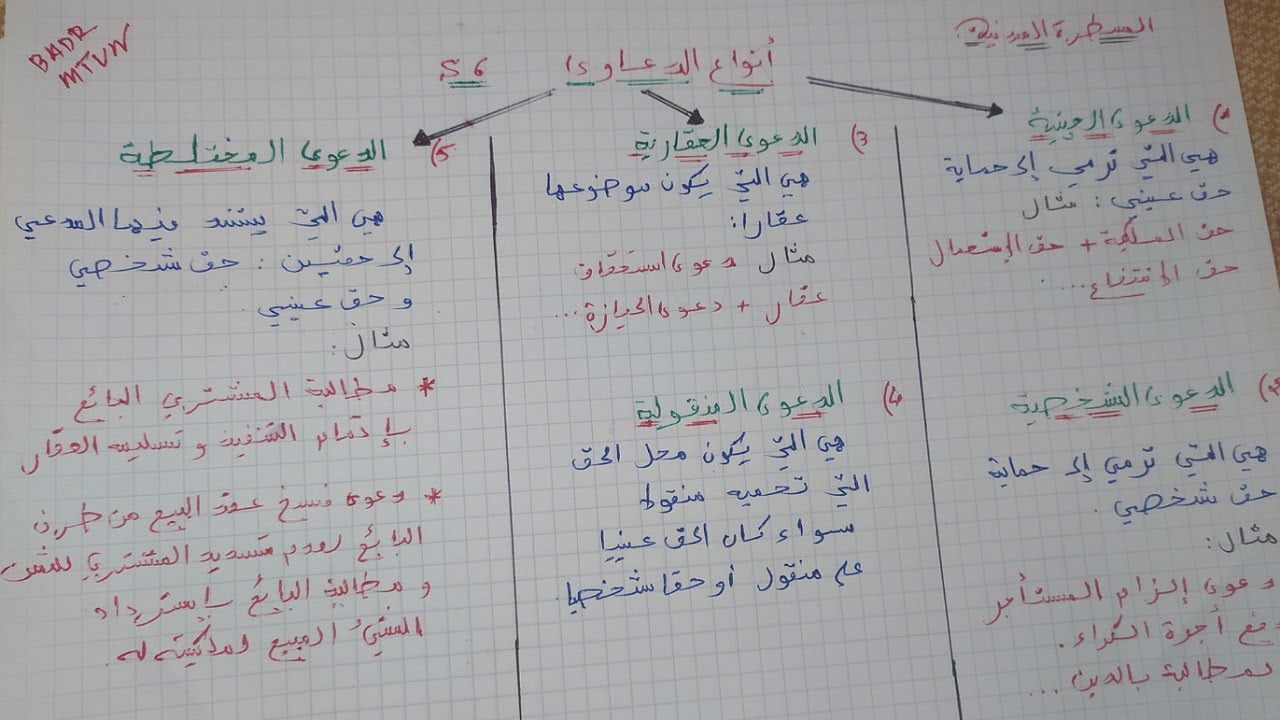 المسطرة المدنية
BADR
MTVN
أنواع الدعاوى S6
1) الدعوى العينية
هي التي ترمي إلى حماية
حق عيني: مثال
حق الملكية + حق الإستعمال
حق الانتفاع...
الدعوى الشخصية
هي التي ترمي إلى حماية
حق شخصي.
مثال:
دعوى إلزام المستأجر
دفع أجرة الكراء.
مطالبة بالدين...
3) الدعوى العقارية
هي التي يكون موضوعها
عقارا:
مثال دعوى استحقاق
عقار + دعوى الحيازة...
4) الدعوى المنقولة
هي التي يكون محل الحق
التي تحميه منقولا
سواء كان الحق عينيا
على منقول أو حقا شخصيا.
5) الدعوى المختلطة
هي التي يستند فيها المدعي
إلى حقين: حق شخصي
و حق عيني.
مثال:
* مطالبة المشتري البائع
بإتمام التنفيذ و تسليم العقار
* دعوى فسخ عقد البيع من طرف
البائع لعدم تسديد المشتري للثمن
و مطالبة البائع بإسترداد
الشيء المبيع وملكيته له.